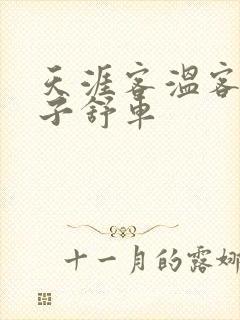 天涯客温客
子舒車
十一月的露娜